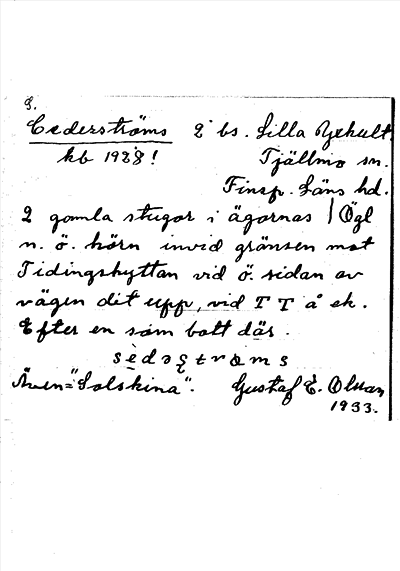 S.
Cederströms 2 bs. Lilla Yxhult
kb 1928! Tjällmo sn.
Finsp. Läns hd.
2 gamla stugor i ägornas / Ögl
n. ö. hörn invid gränsen mot
Tidingshyttan vid ö. sidan av
vägen dit upp, vid T T å ek.
Efter en som bott där.
Även="Solskina". Gustaf E. Olsson
1933.